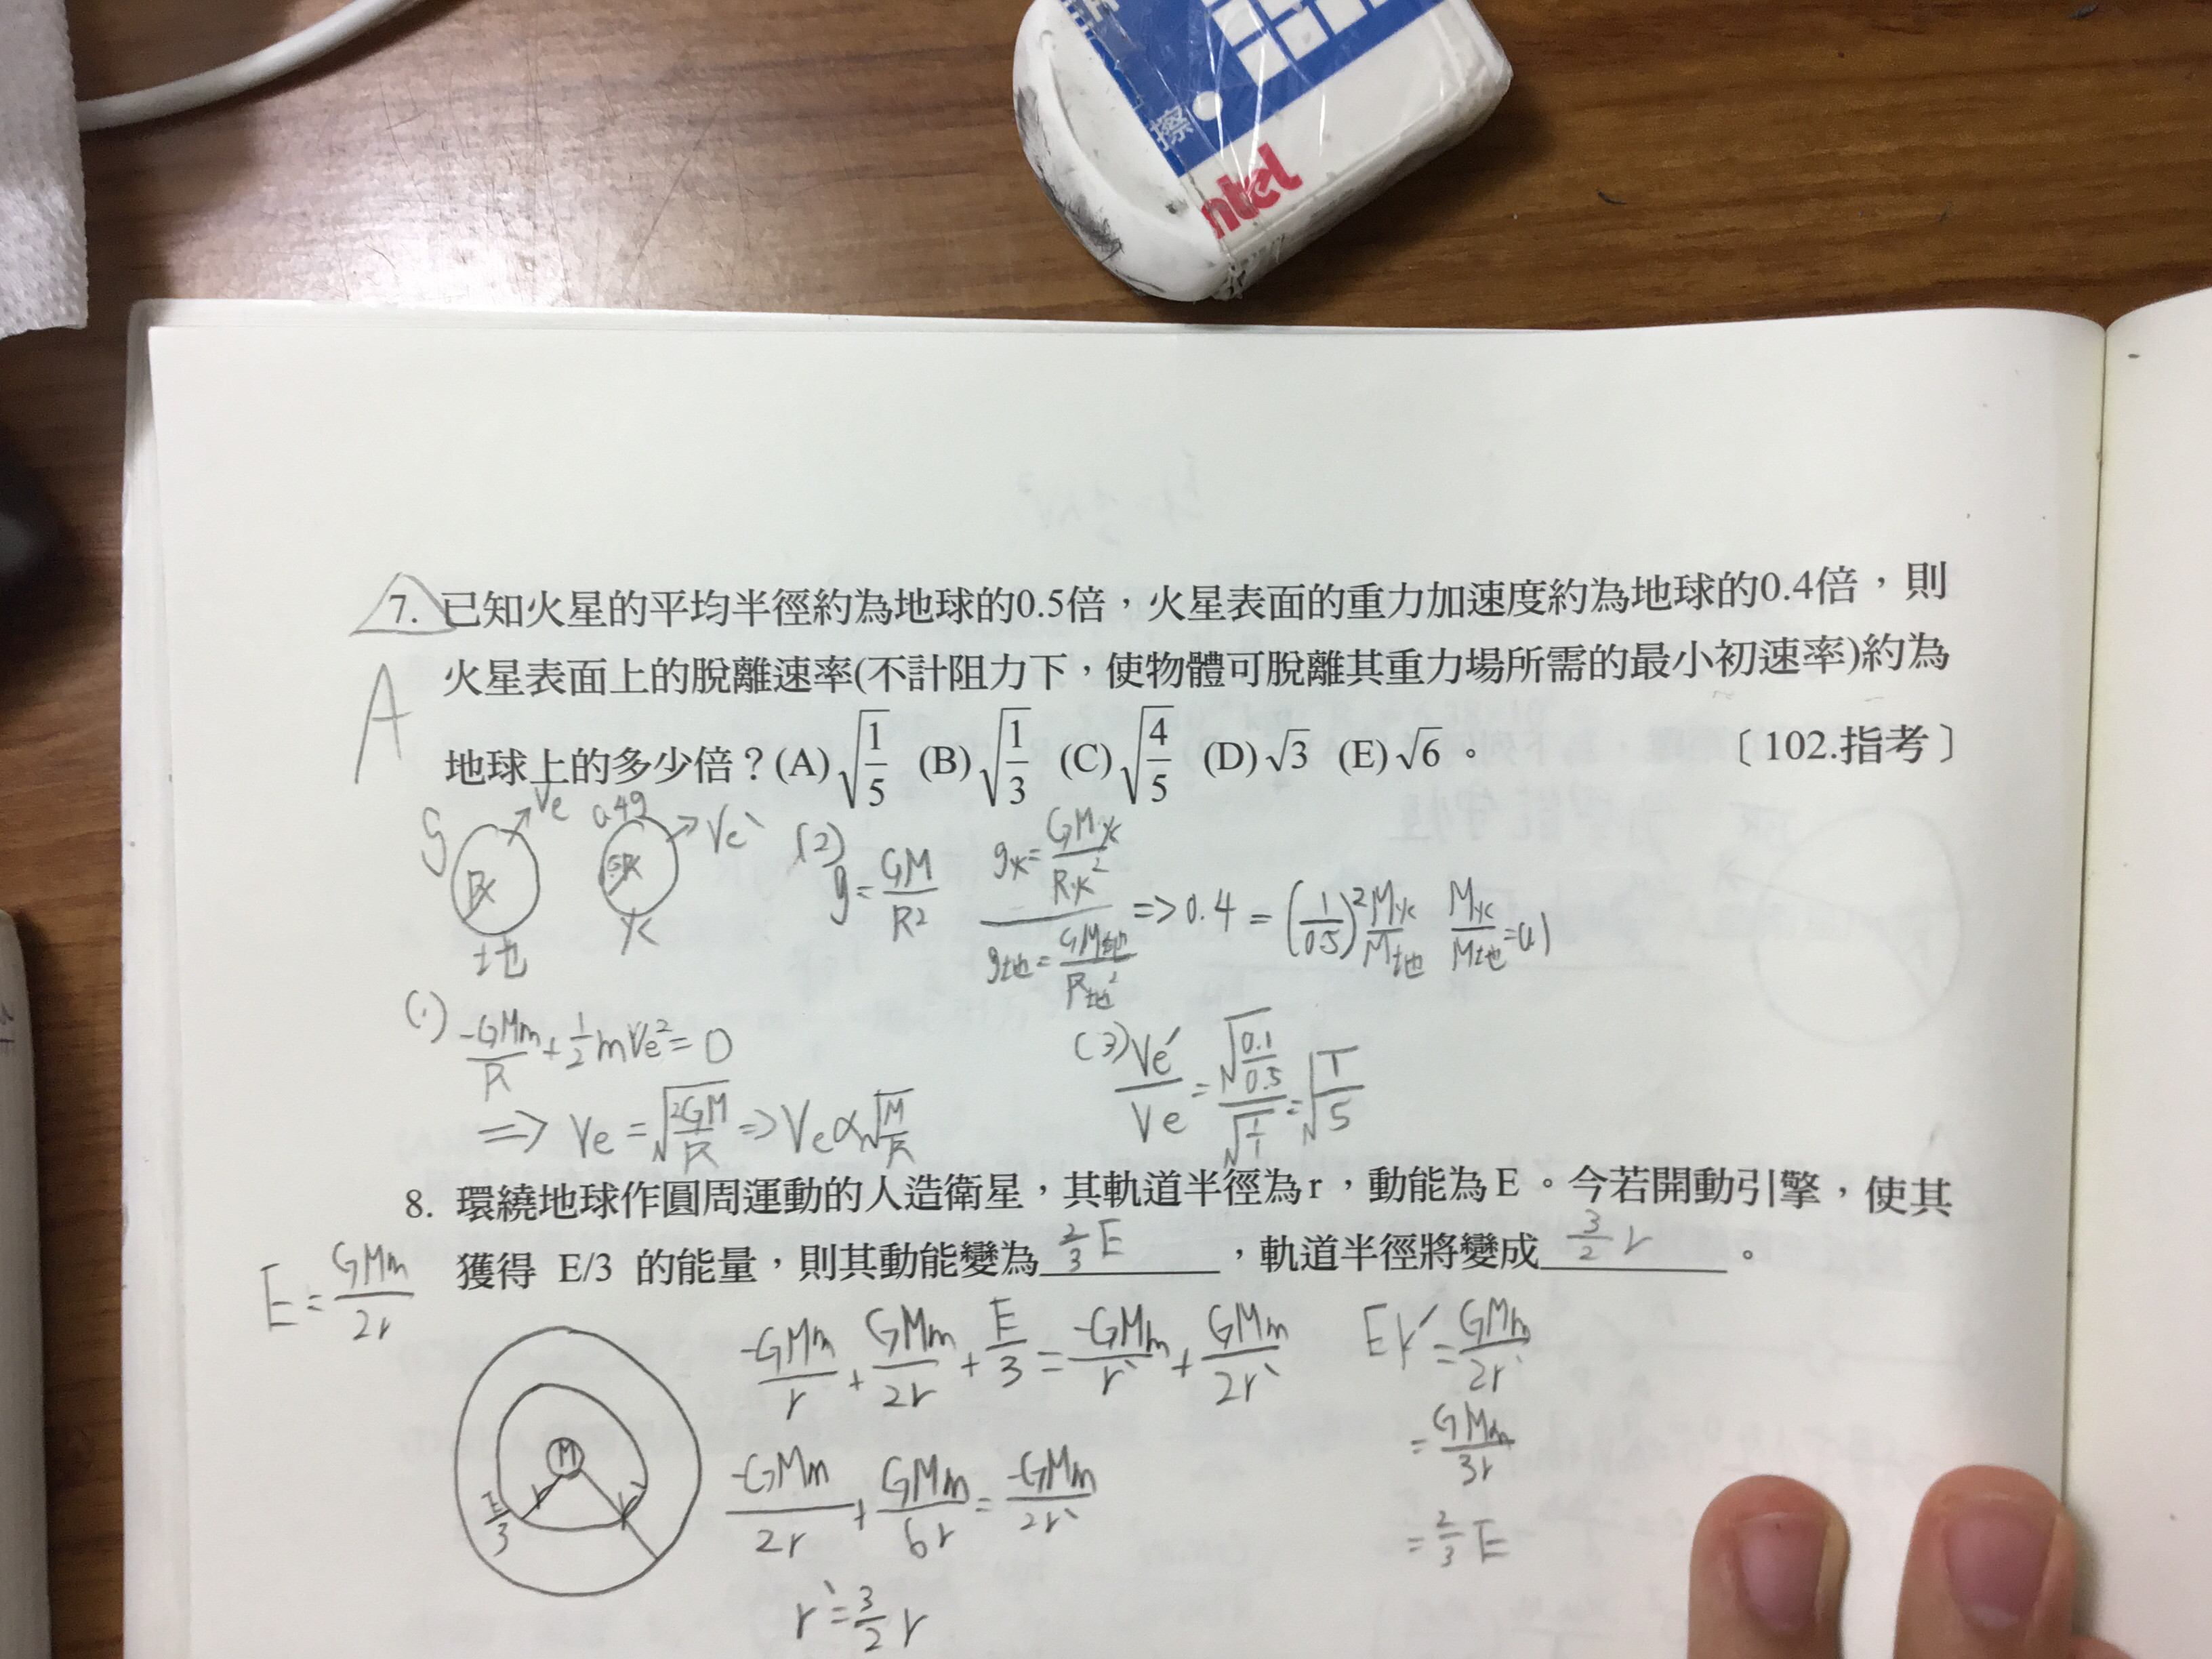 擦
ntel
7. 已知火星的平均半徑約為地球的0.5倍，火星表面的重力加速度約為地球的0.4倍，則
A 火星表面上的脫離速率(不計阻力下，使物體可脫離其重力場所需的最小初速率)約為
地球上的多少倍？(A)√(1/5) (B)√(1/3) (C)√(4/5) (D)√3 (E)√6。 〔102.指考〕
g R Ve 地
0.4g Ve` 火
(2) g = GM/R² g火 = GM火/R火² g地 = GM地/R地² => 0.4 = (1/0.5)² M火/M地 M火/M地 = 0.1
(1) -GMm/R + 1/2 mVe² = 0
=> Ve = √(2GM/R) => Ve ∝ √(M/R)
(3) Ve'/Ve = √(0.1/0.5)/√(1/1) = √(1/5)
8. 環繞地球作圓周運動的人造衛星，其軌道半徑為r，動能為E。今若開動引擎，使其
獲得 E/3 的能量，則其動能變為 2/3 E ，軌道半徑將變成 3/2 r 。
E = GMm/2r
M r r` E/3
-GMm/r + GMm/2r + E/3 = -GMm/r` + GMm/2r`
-GMm/2r + GMm/6r = -GMm/2r`
r` = 3/2 r
Ek' = GMm/2r`
= GMm/3r
= 2/3 E